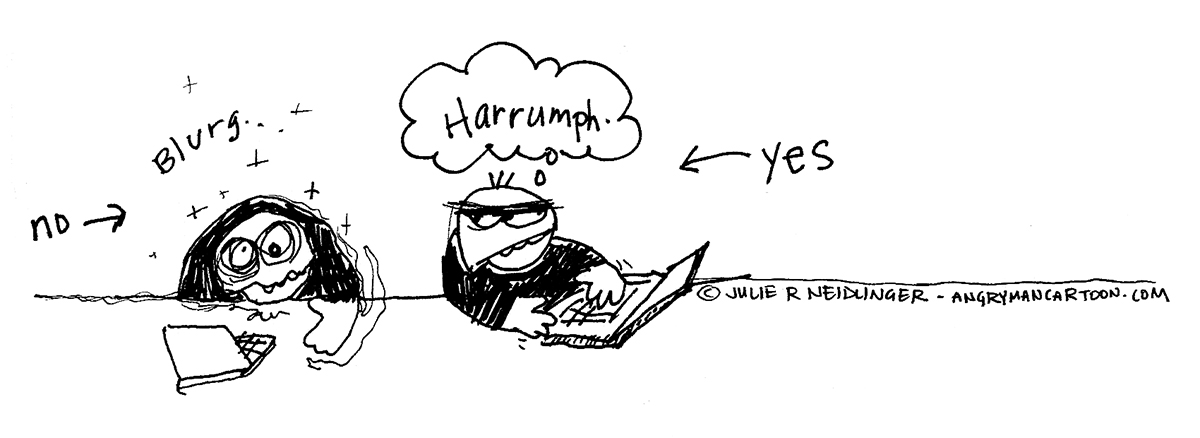 Blurg...
no
Harrumph.
yes
© JULIE R NEIDLINGER - ANGRYMANCARTOON.COM